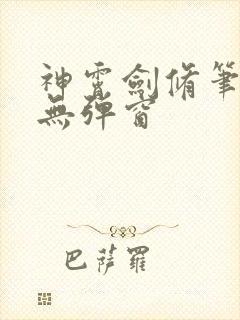 神霄劍脩筆
無彈窗
巴薩羅